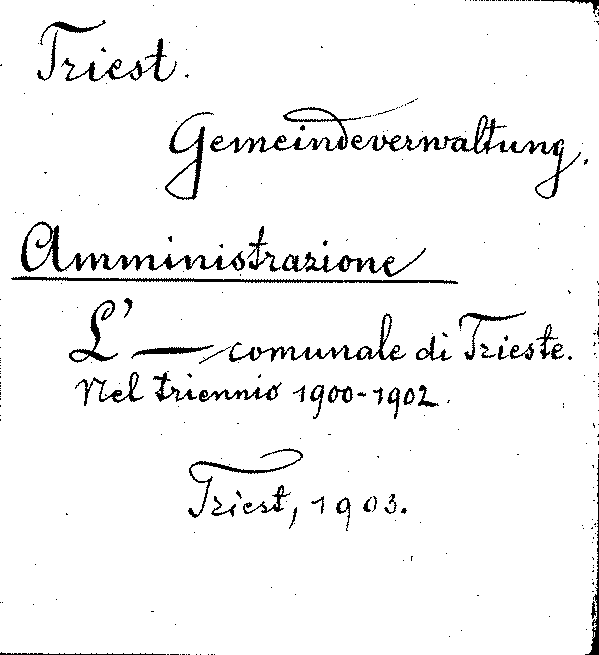 Triest.
Gemeindeverwaltung.
Amministrazione
L' — comunale di Trieste.
Nel triennio 1900-1902.
Triest, 1903.